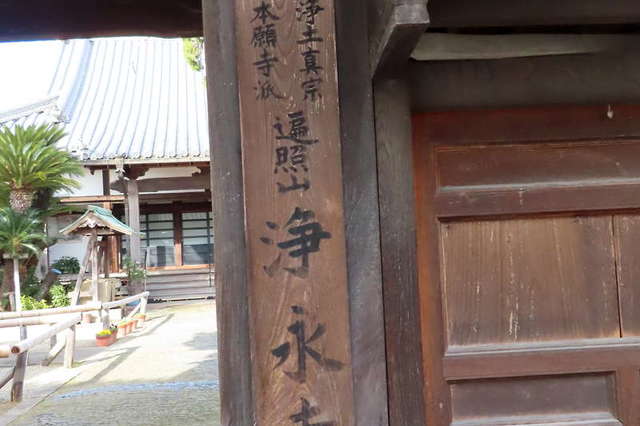 浄土真宗
本願寺派
遍照山
浄永寺